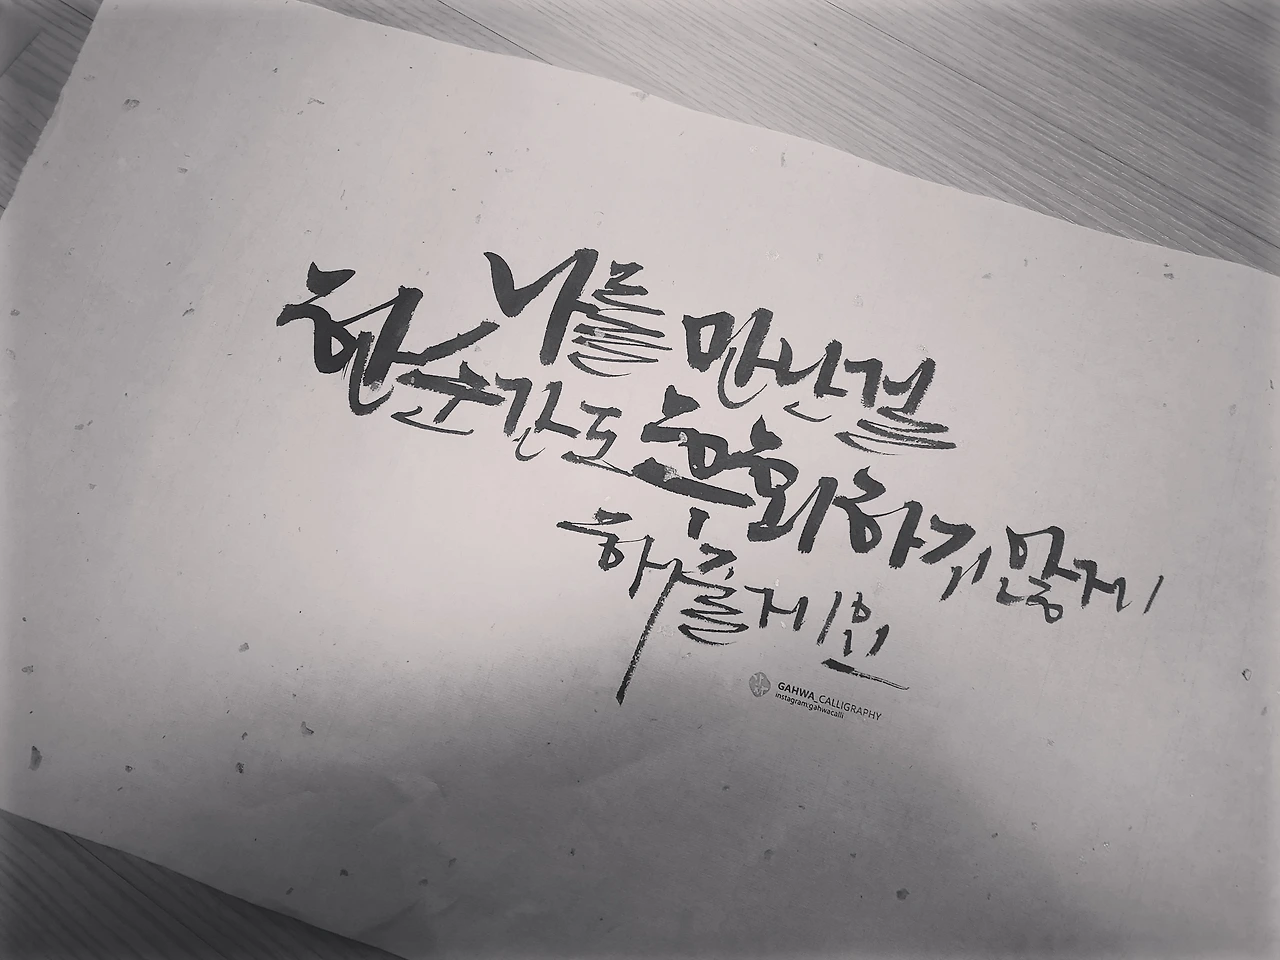 나를 만난걸
한순간도 후회하지 않게
해줄게요
GAHWA_CALLIGRAPHY
instagram:gahwacalli